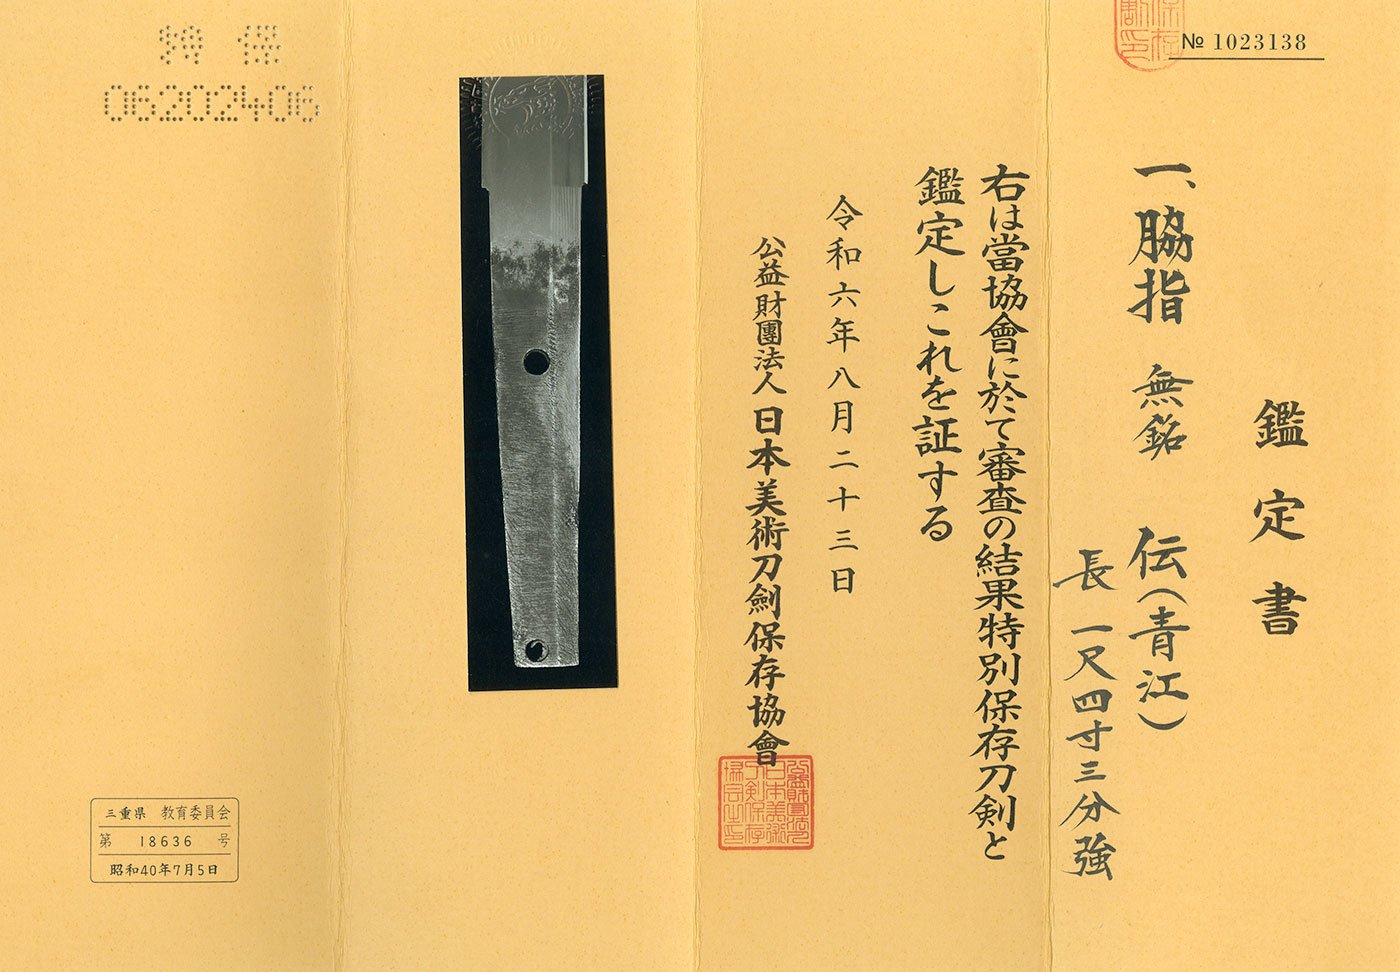 № 1023138
鑑定書
一、脇指 無銘 伝(青江)
長 一尺四寸三分強
右は當協會に於て審査の結果特別保存刀剣と
鑑定しこれを証する
令和六年八月二十三日
公益財團法人 日本美術刀劍保存協會
特保
06202406
三重県 教育委員会
第 18636 号
昭和40年7月5日